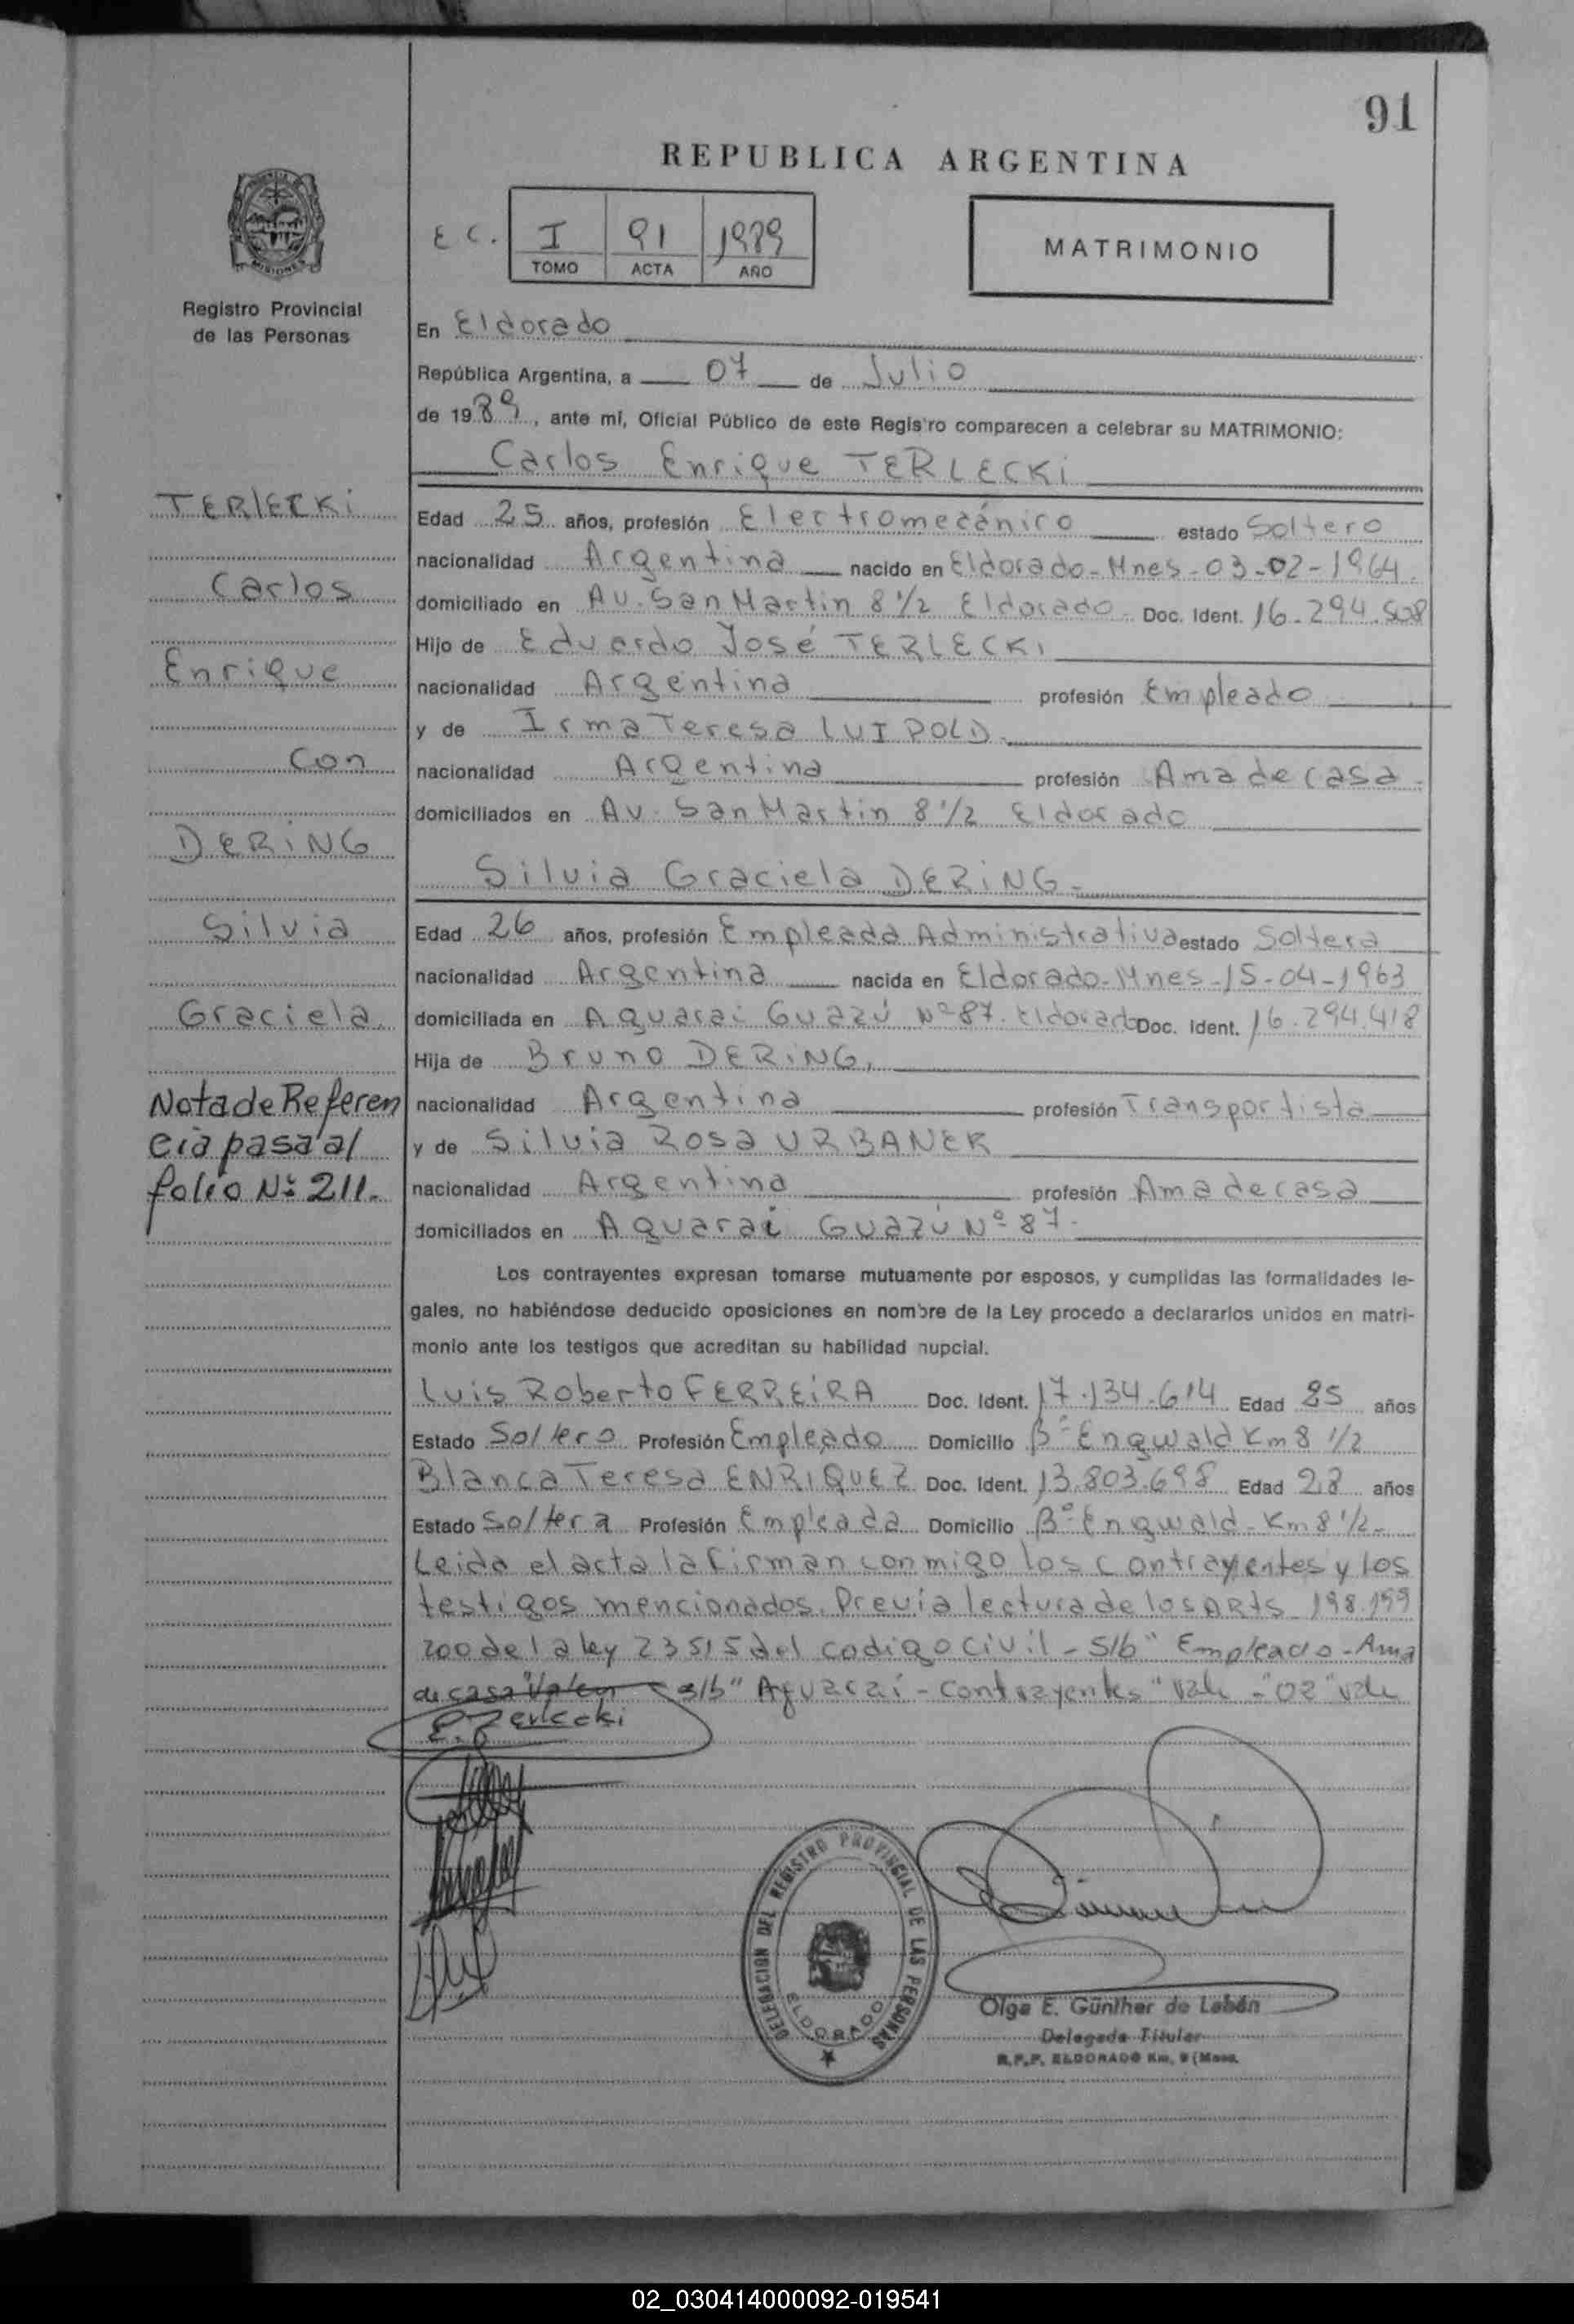 91
REPUBLICA ARGENTINA
E C.
I
91
1989
TOMO
ACTA
AÑO
MATRIMONIO
MISIONES
Registro Provincial
de las Personas
En Eldorado
República Argentina, a 07 de Julio
de 1989, ante mí, Oficial Público de este Registro comparecen a celebrar su MATRIMONIO:
Carlos Enrique TERLECKI
Edad 25 años, profesión Electromecánico estado Soltero
nacionalidad Argentina nacido en Eldorado-Mnes-03-02-1964.
domiciliado en Av. San Martin 8 1/2 Eldorado- Doc. Ident. 16.294.508
Hijo de Eduardo José TERLECKI
nacionalidad Argentina profesión Empleado
y de Irma Teresa LUIPOLD.
nacionalidad Argentina profesión Ama de casa-
domiciliados en Av. San Martin 8 1/2 Eldorado
Silvia Graciela DERiNG-
Edad 26 años, profesión Empleada Administrativa estado Soltera
nacionalidad Argentina nacida en Eldorado-Mnes-15-04-1963
domiciliada en Aguarai Guazú Nº 87. Eldorado Doc. Ident. 16.294.418
Hija de Bruno DERiNG,
nacionalidad Argentina profesión Transportista
y de Silvia Rosa URBANEK
nacionalidad Argentina profesión Ama de casa
domiciliados en Aguarai Guazú Nº 87-
TERlECKi
Carlos
Enrique
Con
DERiNG
Silvia
Graciela
Nota de Referen
cia pasa al
folio Nº 211.
Los contrayentes expresan tomarse mutuamente por esposos, y cumplidas las formalidades le-
gales, no habiéndose deducido oposiciones en nombre de la Ley procedo a declararlos unidos en matri-
monio ante los testigos que acreditan su habilidad nupcial.
Luis Roberto FERREiRA Doc. Ident. 17.134.614 Edad 25 años
Estado Soltero Profesión Empleado Domicilio Bº Engwald Km 8 1/2
Blanca Teresa ENRIQUEZ Doc. Ident. 13.803.698 Edad 28 años
Estado Soltera Profesión Empleada Domicilio Bº Engwald-Km 8 1/2-
Leida el acta la firman conmigo los contrayentes y los
testigos mencionados. Previa lectura de los ARts 198.199
200 de la ley 23515 del codigo civil - S/b" Empleado-Ama
de casa "Valen s/b" Aguarai-contrayentes "Vale -"02" vale
E. Terlecki
DELEGACION DEL REGISTRO PROVINCIAL DE LAS PERSONAS
ELDORADO
Olga E. Günther de Labán
Delegada Titular
R.P.P. ELDORADO Km. 9 (Mnes.
02_030414000092-019541